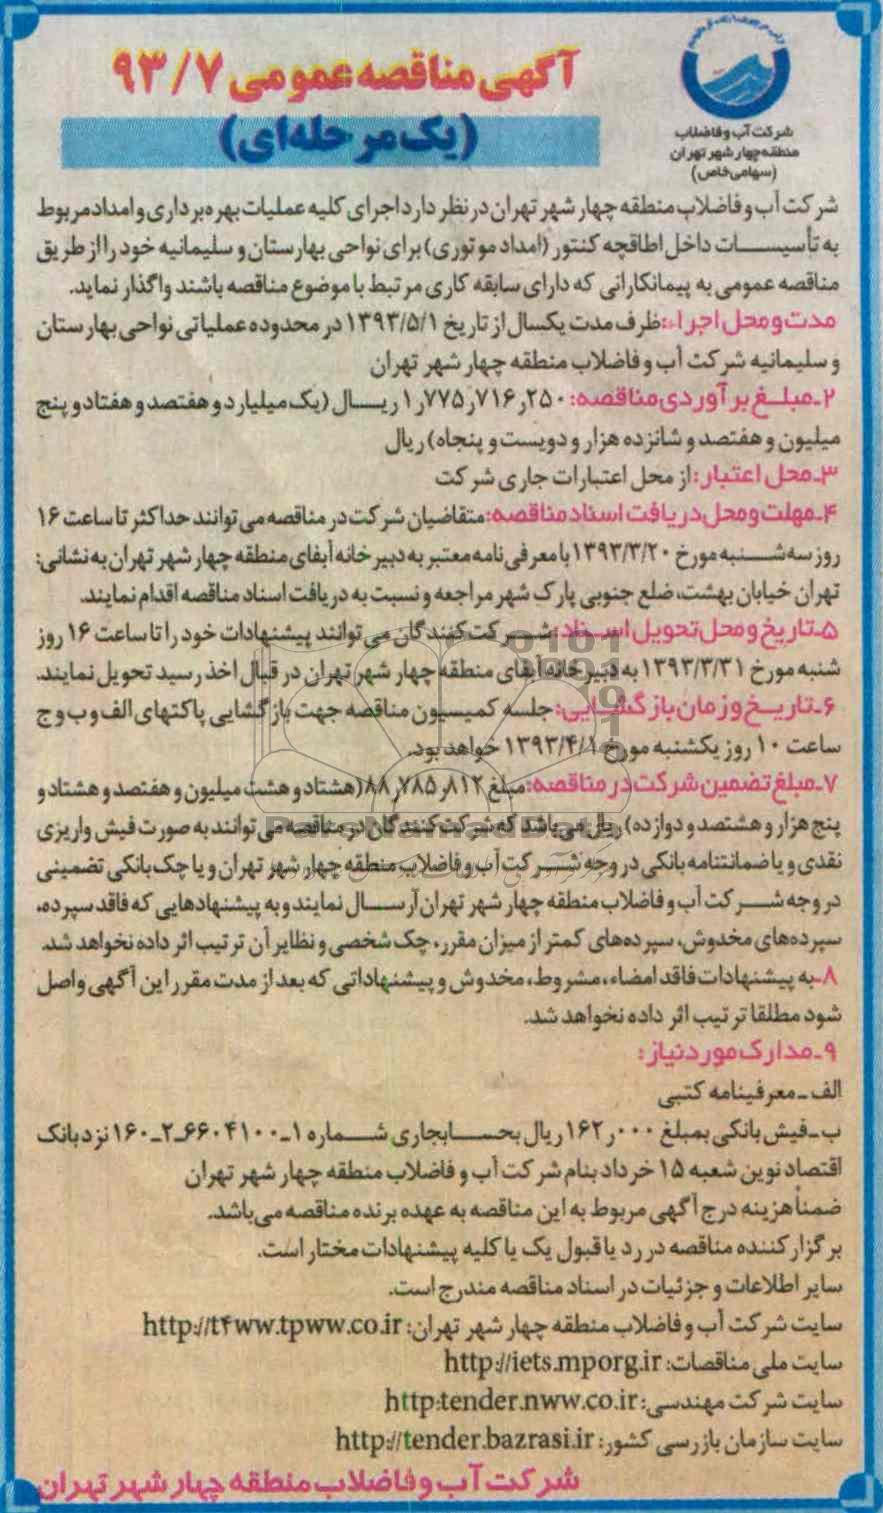 شرکت آب و فاضلاب
منطقه چهار شهر تهران
(سهامی خاص)
آگهی مناقصه عمومی ۹۳/۷
(یک مرحله‌ای)
شرکت آب و فاضلاب منطقه چهار شهر تهران در نظر دارد اجرای کلیه عملیات بهره برداری و امداد مربوط
به تأسیسات داخل اطاقچه کنتور (امداد موتوری) برای نواحی بهارستان و سلیمانیه خود را از طریق
مناقصه عمومی به پیمانکارانی که دارای سابقه کاری مرتبط با موضوع مناقصه باشند واگذار نماید.
مدت و محل اجرا: ظرف مدت یکسال از تاریخ ۱۳۹۳/۵/۱ در محدوده عملیاتی نواحی بهارستان
و سلیمانیه شرکت آب و فاضلاب منطقه چهار شهر تهران
۲ـ مبلغ برآوردی مناقصه: ۱٫۷۷۵٫۷۱۶٫۲۵۰ ریال (یک میلیارد و هفتصد و هفتاد و پنج
میلیون و هفتصد و شانزده هزار و دویست و پنجاه) ریال
۳ـ محل اعتبار: از محل اعتبارات جاری شرکت
۴ـ مهلت و محل دریافت اسناد مناقصه: متقاضیان شرکت در مناقصه می توانند حداکثر تا ساعت ۱۶
روز سه شنبه مورخ ۱۳۹۳/۳/۲۰ با معرفی نامه معتبر به دبیرخانه آبفای منطقه چهار شهر تهران به نشانی:
تهران خیابان بهشت، ضلع جنوبی پارک شهر مراجعه و نسبت به دریافت اسناد مناقصه اقدام نمایند.
۵ـ تاریخ و محل تحویل اسناد: شرکت کنندگان می توانند پیشنهادات خود را تا ساعت ۱۶ روز
شنبه مورخ ۱۳۹۳/۳/۳۱ به دبیرخانه آبفای منطقه چهار شهر تهران در قبال اخذ رسید تحویل نمایند.
۶ـ تاریخ و زمان بازگشایی: جلسه کمیسیون مناقصه جهت بازگشایی پاکتهای الف و ب و ج
ساعت ۱۰ روز یکشنبه مورخ ۱۳۹۳/۴/۱ خواهد بود.
۷ـ مبلغ تضمین شرکت در مناقصه: مبلغ ۸۸٫۷۸۵٫۸۱۲ (هشتاد و هشت میلیون و هفتصد و هشتاد و
پنج هزار و هشتصد و دوازده) ریال می باشد که شرکت کنندگان در مناقصه می توانند به صورت فیش واریزی
نقدی و یا ضمانتنامه بانکی در وجه شرکت آب و فاضلاب منطقه چهار شهر تهران و یا چک بانکی تضمینی
در وجه شرکت آب و فاضلاب منطقه چهار شهر تهران ارسال نمایند و به پیشنهادهایی که فاقد سپرده،
سپرده‌های مخدوش، سپرده‌های کمتر از میزان مقرر، چک شخصی و نظایر آن ترتیب اثر داده نخواهد شد.
۸ـ به پیشنهادات فاقد امضاء، مشروط، مخدوش و پیشنهاداتی که بعد از مدت مقرر این آگهی واصل
شود مطلقا ترتیب اثر داده نخواهد شد.
۹ـ مدارک مورد نیاز:
الف ـ معرفینامه کتبی
ب ـ فیش بانکی بمبلغ ۱۶۲٫۰۰۰ ریال بحسابجاری شماره ۱ـ۶۶۰۴۱۰۰ـ۲ـ۱۶۰ نزد بانک
اقتصاد نوین شعبه ۱۵ خرداد بنام شرکت آب و فاضلاب منطقه چهار شهر تهران
ضمناً هزینه درج آگهی مربوط به این مناقصه به عهده برنده مناقصه می باشد.
برگزار کننده مناقصه در رد یا قبول یک یا کلیه پیشنهادات مختار است.
سایر اطلاعات و جزئیات در اسناد مناقصه مندرج است.
سایت شرکت آب و فاضلاب منطقه چهار شهر تهران: http://t۴ww.tpww.co.ir
سایت ملی مناقصات: http://iets.mporg.ir
سایت شرکت مهندسی: http:tender.nww.co.ir
سایت سازمان بازرسی کشور: http://tender.bazrasi.ir
شرکت آب و فاضلاب منطقه چهار شهر تهران